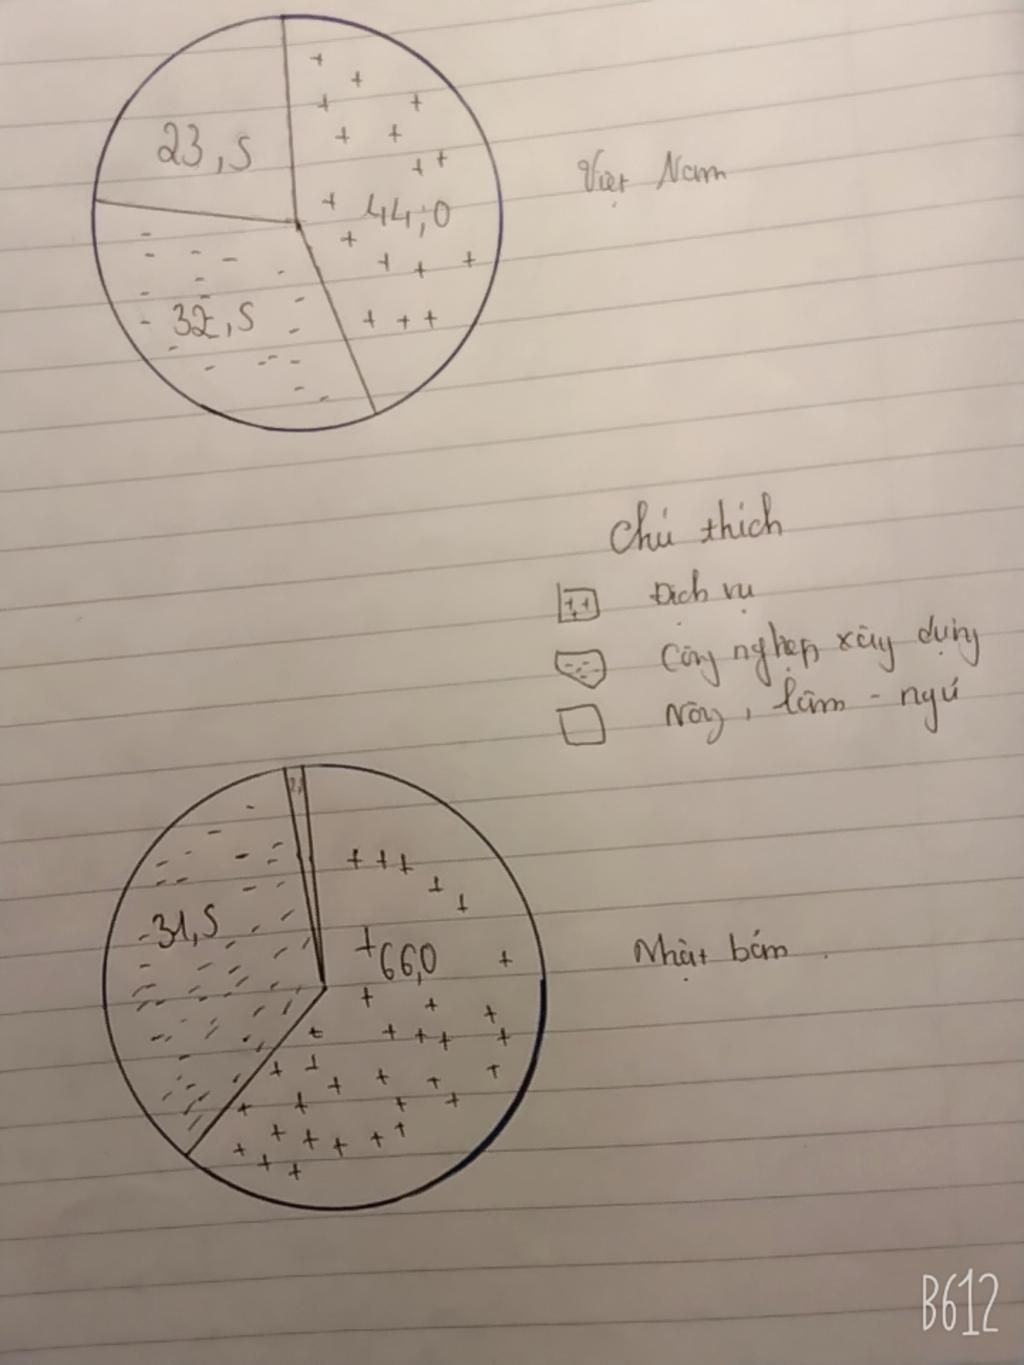 23,5
44,0
32,5
Việt Nam
Chú thích
Dịch vụ
Công nghẹp xây dựng
Nông, lâm - ngư
31,5
66,0
Nhật bản
B612